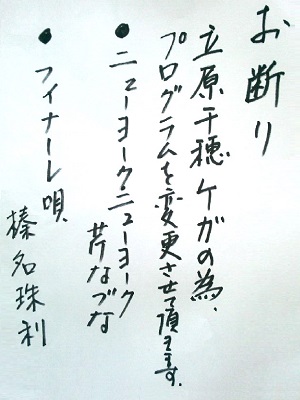 お断り
立原千穂ケガの為、
プログラムを変更させて頂きます。
● ニューヨーク・ニューヨーク
芹なづな
● フィナーレ唄、
榛名珠利